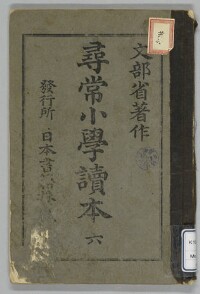 文部省著作
尋常小學讀本 六
發行所 日本書籍株